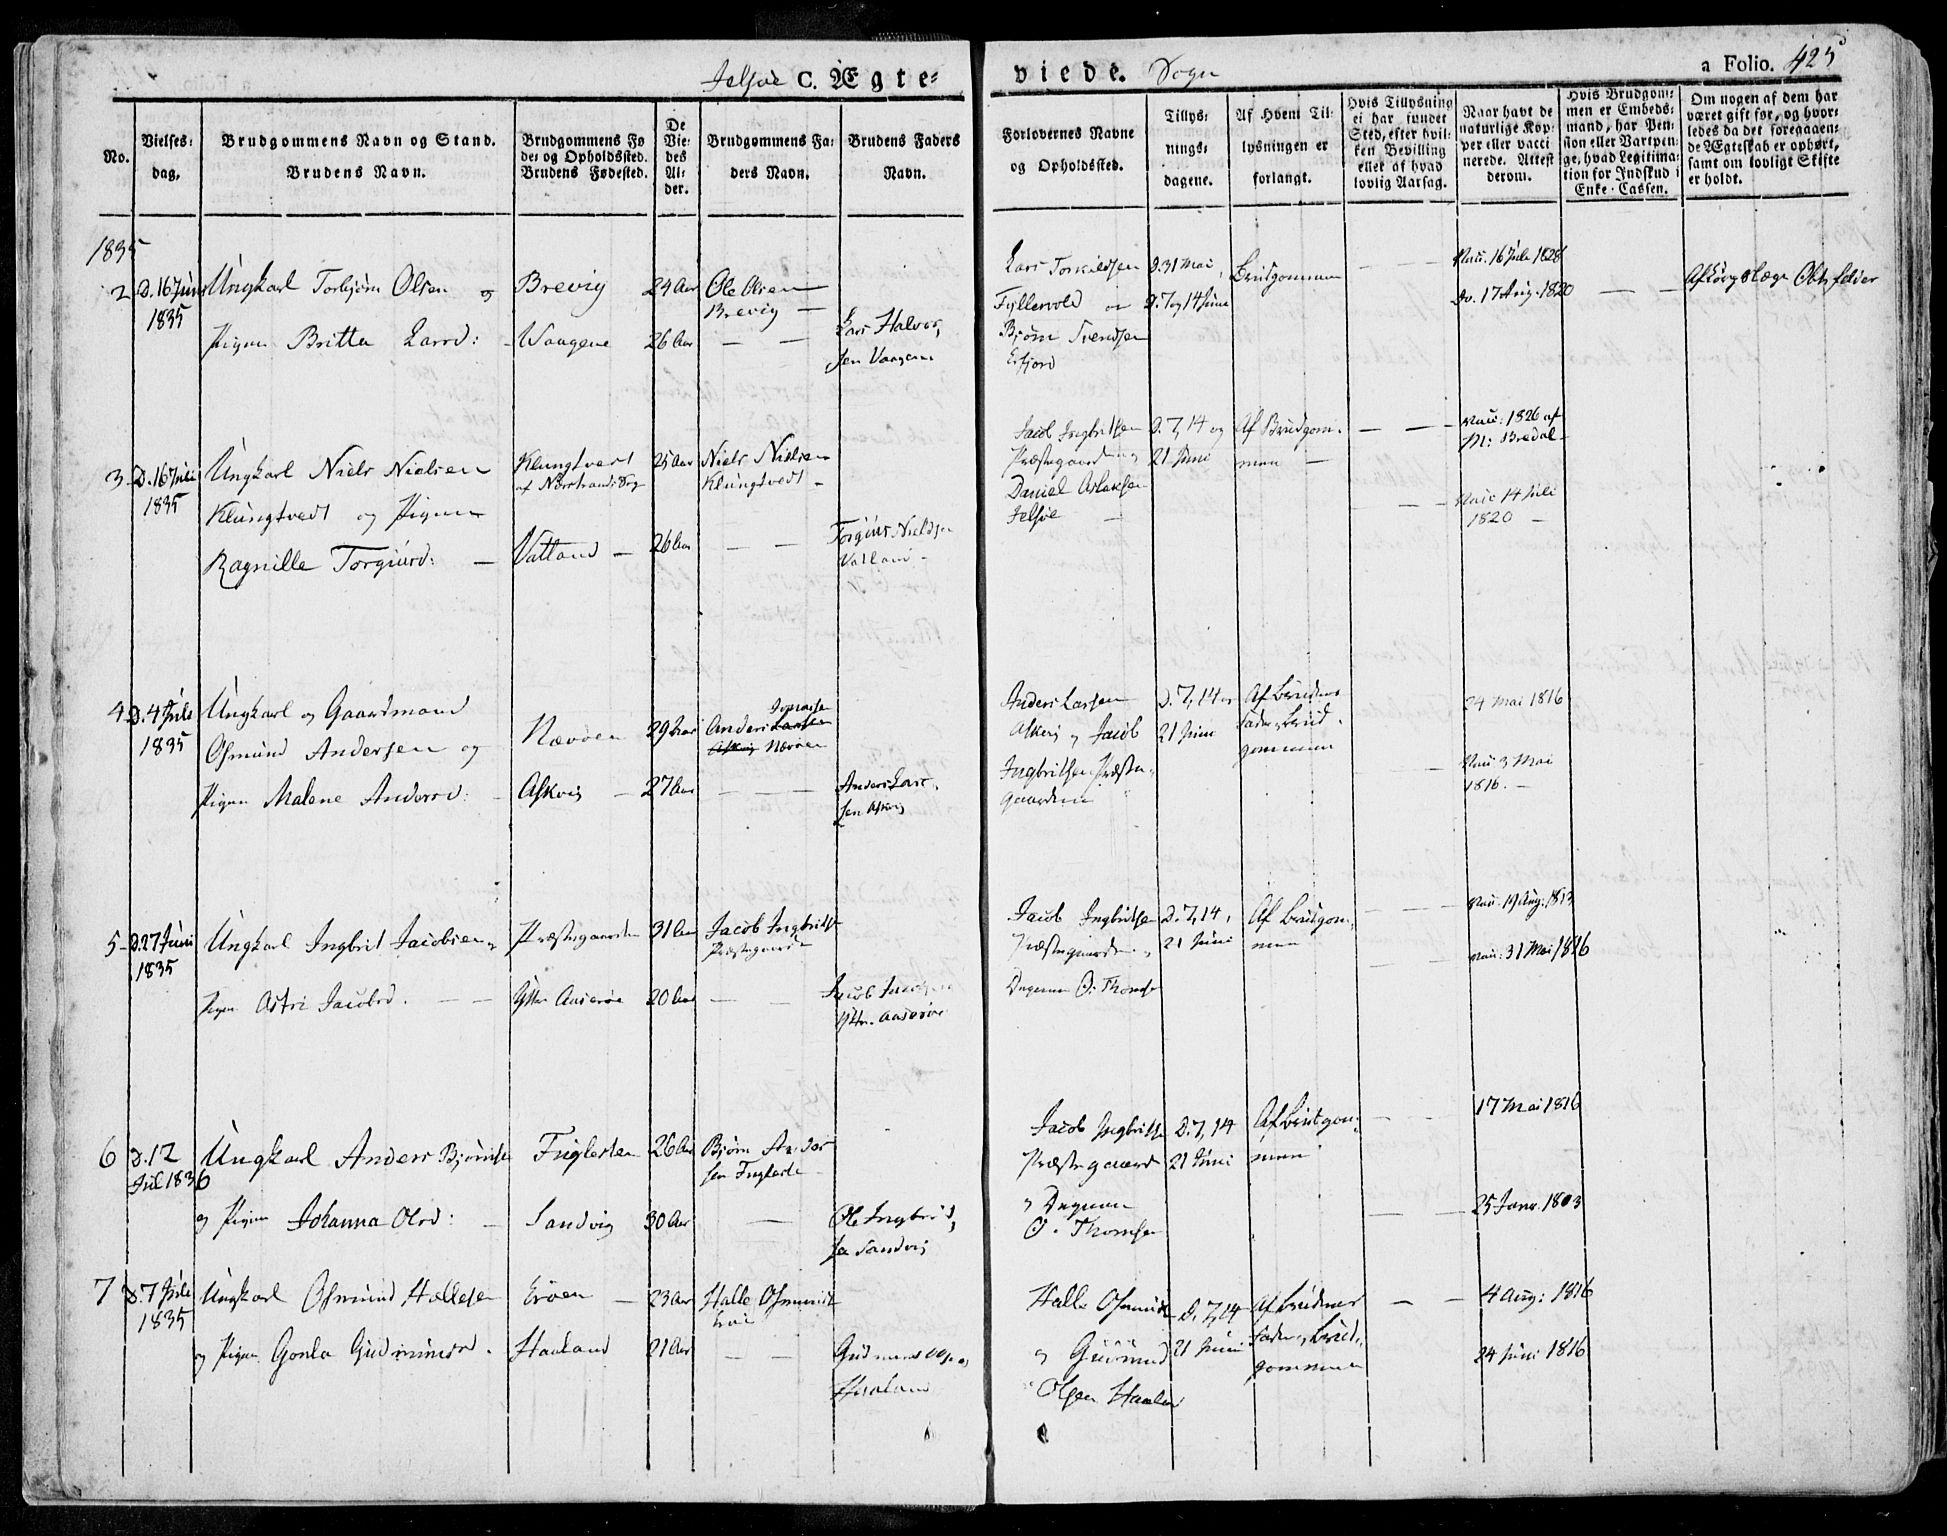 Jelsøe C. Ægte= viede. Sogn
a Folio. 425
No.
Vielses: dag.
Brudgommens Navn og Stand.
Brudens Navn.
Brudgommens Fø
de- og Opholdssted.
Brudens Fødested.
De
Vie:
des
Al-
der.
Brudgommens Fa:
ders Navn.
Brudens Faders
Navn.
Forlovernes Navne
og Opholdssted.
Tillys:
nings:
dagene.
Af Hvem Til:
lysningen er
forlangt.
Hvis Tillysning
ei har fundet
Sted, efter hvil-
ken Bevilling
eller af hvad
lovlig Aarsag.
Naar havt de
naturlige Kop-
per eller vacci
nerede. Attest
derom.
Hvis Brudgom:
men er Embeds:
mand, har Pen-
sion eller Vartpen-
ge, hvad Legitima-
tion for Indskud i
Enke-Cassen.
Om nogen af dem har
været gift før, og hvor-
ledes da det foregaaen-
de Ægteskab er ophørt,
samt om lovligt Skifte
er holdt.
1835
2 D. 16 Juni
1835
Ungkarl Torbjørn Olsen og
Pigen Britta Larsd: -
Brevig
Waagene
24 Aar
26 Aar
Ole Olsen
Brevig -
Lars Halvor,
sen Vaagene
Lars Torkildsen
Fyllesvold og
Bjørn Svendsen
Erfjord
D. 31 Mai,
D. 7 og 14 June
Brudgommen
Vacc. 16 Jule 1828
Do. 17 Aug. 1820
3 D. 16 Juli
1835
Ungkarl Niels Nielsen
Klungtvedt og Pigen
Ragnille Torgiusd: -
Klungtvedt
af Nærstrands Sog
Vatland -
25 Aar
26 Aar
Niels Nielsen
Klungtvedt -
Torgius Nieldsen
Vatland -
Jacob Ingbritsen
Præstegaarden og
Daniel Aslaksen
Jelsøe -
D. 7, 14 og
21 Juni
Af Brudgom-
men -
Vacc: 1826 af
M: Bredal -
Vacc 14 Juli
1820 -
4 D. 4 Jule
1835
Ungkarl og Gaardmand
Osmund Andersen og
Pigen Malene Andersd: -
Nævøen
Askvig -
29 Aar
27 Aar
Anders Larsen
Askvig Nævøen
Anders Lars-
sen Askvig
Anders Larsen
Askvig og Jacob
Ingbritsen Præste-
gaarden
D. 7, 14 og
21 Juni
Af Brudens
Fader og Brud-
gommen
24 Mai 1816
Vacc 3 Mai
1816. -
5 D. 27 Juni
1835
Ungkarl Ingbrit Jacobsen og
Pigen Astri Jacobsd. -
Præstegaarden
Ytter Aaserøe
31 Aar
20 Aar
Jacob Ingbritsen
Præstegaarden
Jacob Jacobsen
Ytter Aaserøe
Jacob Ingbritsen
Præstegaarden og
Degnen O. Thomsen
D. 7, 14,
21 Juni
Af Brudgom-
men
Vacc. 19 Aug: 1813
Vacc: 31 Mai 1816
6 D. 12
Jul 1836
Ungkarl Anders Bjørnsen
og Pigen Johanna Olsd: -
Fuglesten
Sandvig
26 Aar
30 Aar
Bjørn Ander
sen Fugleste
Ole Ingbrit,
sen Sandvig
Jacob Ingbritsen
Præstegaard
og Degnen
O. Thomsen
D. 7, 14
21 Juni
Af Brudgom-
men
17 Mai 1816
25 Janr. 1803
7 D. 7 Jule
1835
Ungkarl Osmund Hallesen
og Pigen Gonla Gudmunsd.
Erøen -
Haaland
23 Aar
21 Aar
Halle Osmund
Gudmund Olsen
Haaland
Halle Osmund
og Gudmund
Olsen Haaland
D. 7, 14
21 Juni
Af Brudens
Fader og Brud-
gommen
4 Aug: 1816
24 Juni 1816